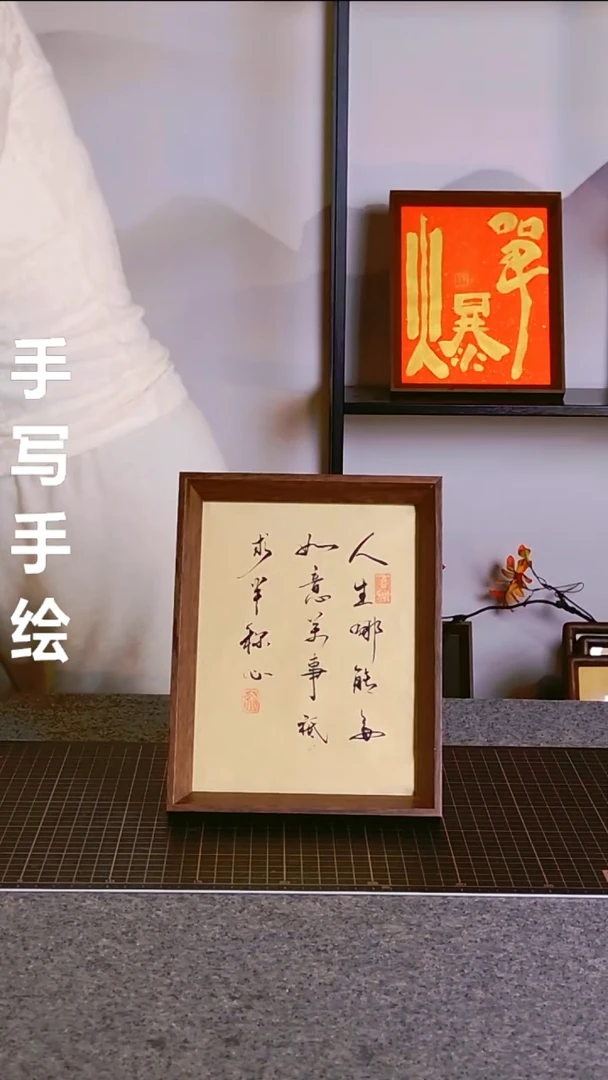 手写手绘
爆單
人生哪能多
如意萬事祇
求半称心